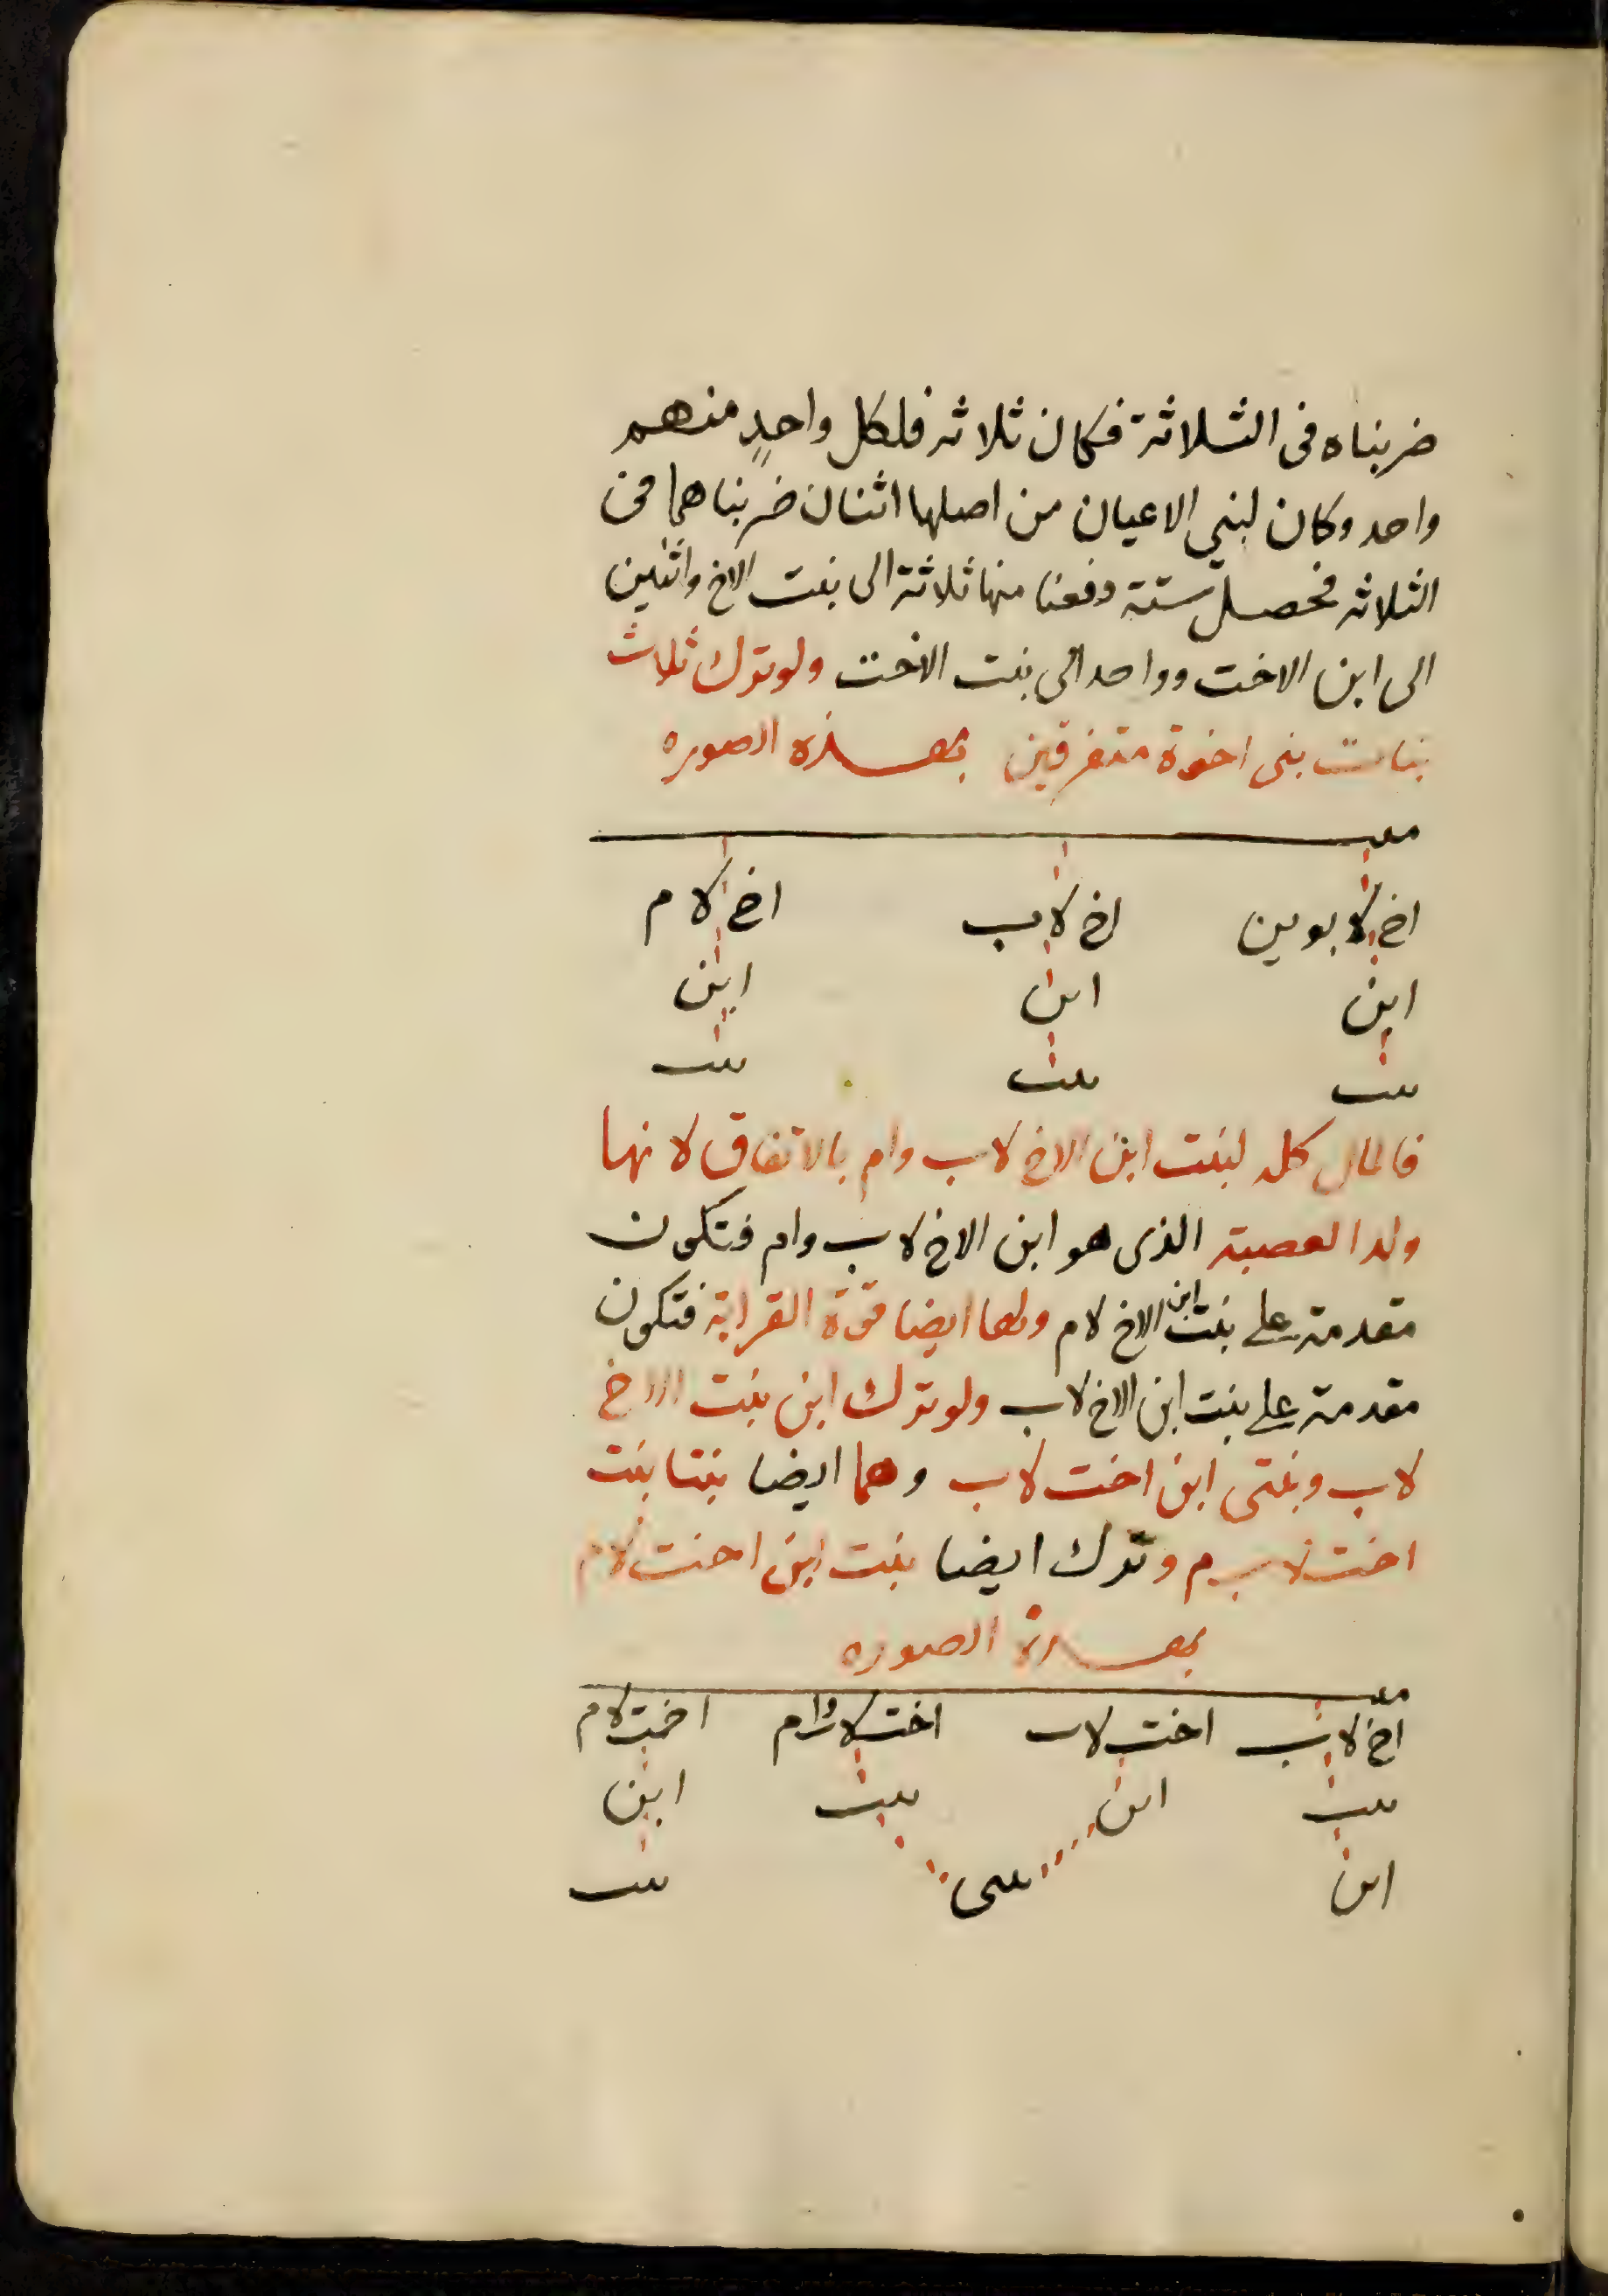 ضربناه فى الثلاثة فكان ثلاثه فلكل واحدٍ منهم
واحد وكان لبني الاعيان من اصلها اثنان ضربناهما فى
الثلاثه فحصل ستة دفعنا منها ثلاثة الى بنت الاخ واثنين
الى ابن الاخت وواحد الى بنت الاخت ولو ترك ثلاث
بنات بنى اخوة متفرقين بهذه الصوره
ميت
اخ لابوين اخ لاب اخ لام
ابن ابن ابن
بنت بنت بنت
فالمال كله لبنت ابن الاخ لاب وام بالاتفاق لانها
ولد العصبة الذى هو ابن الاخ لاب وام فتكون
مقدمة على بنت ابن الاخ لام ولها ايضا قوة القرابة فتكون
مقدمة على بنت ابن الاخ لاب ولو ترك ابن بنت الاخ
لاب وبنتى ابن اخت لاب وهما ايضا بنتا بنت
اخت لاب م وترك ايضا بنت ابن اخت لام
بهذه الصوره
ميت
اخ لاب اخت لاب اخت لاب وام اخت لام
بنت ابن بنت ابن
ابن بنتى بنت